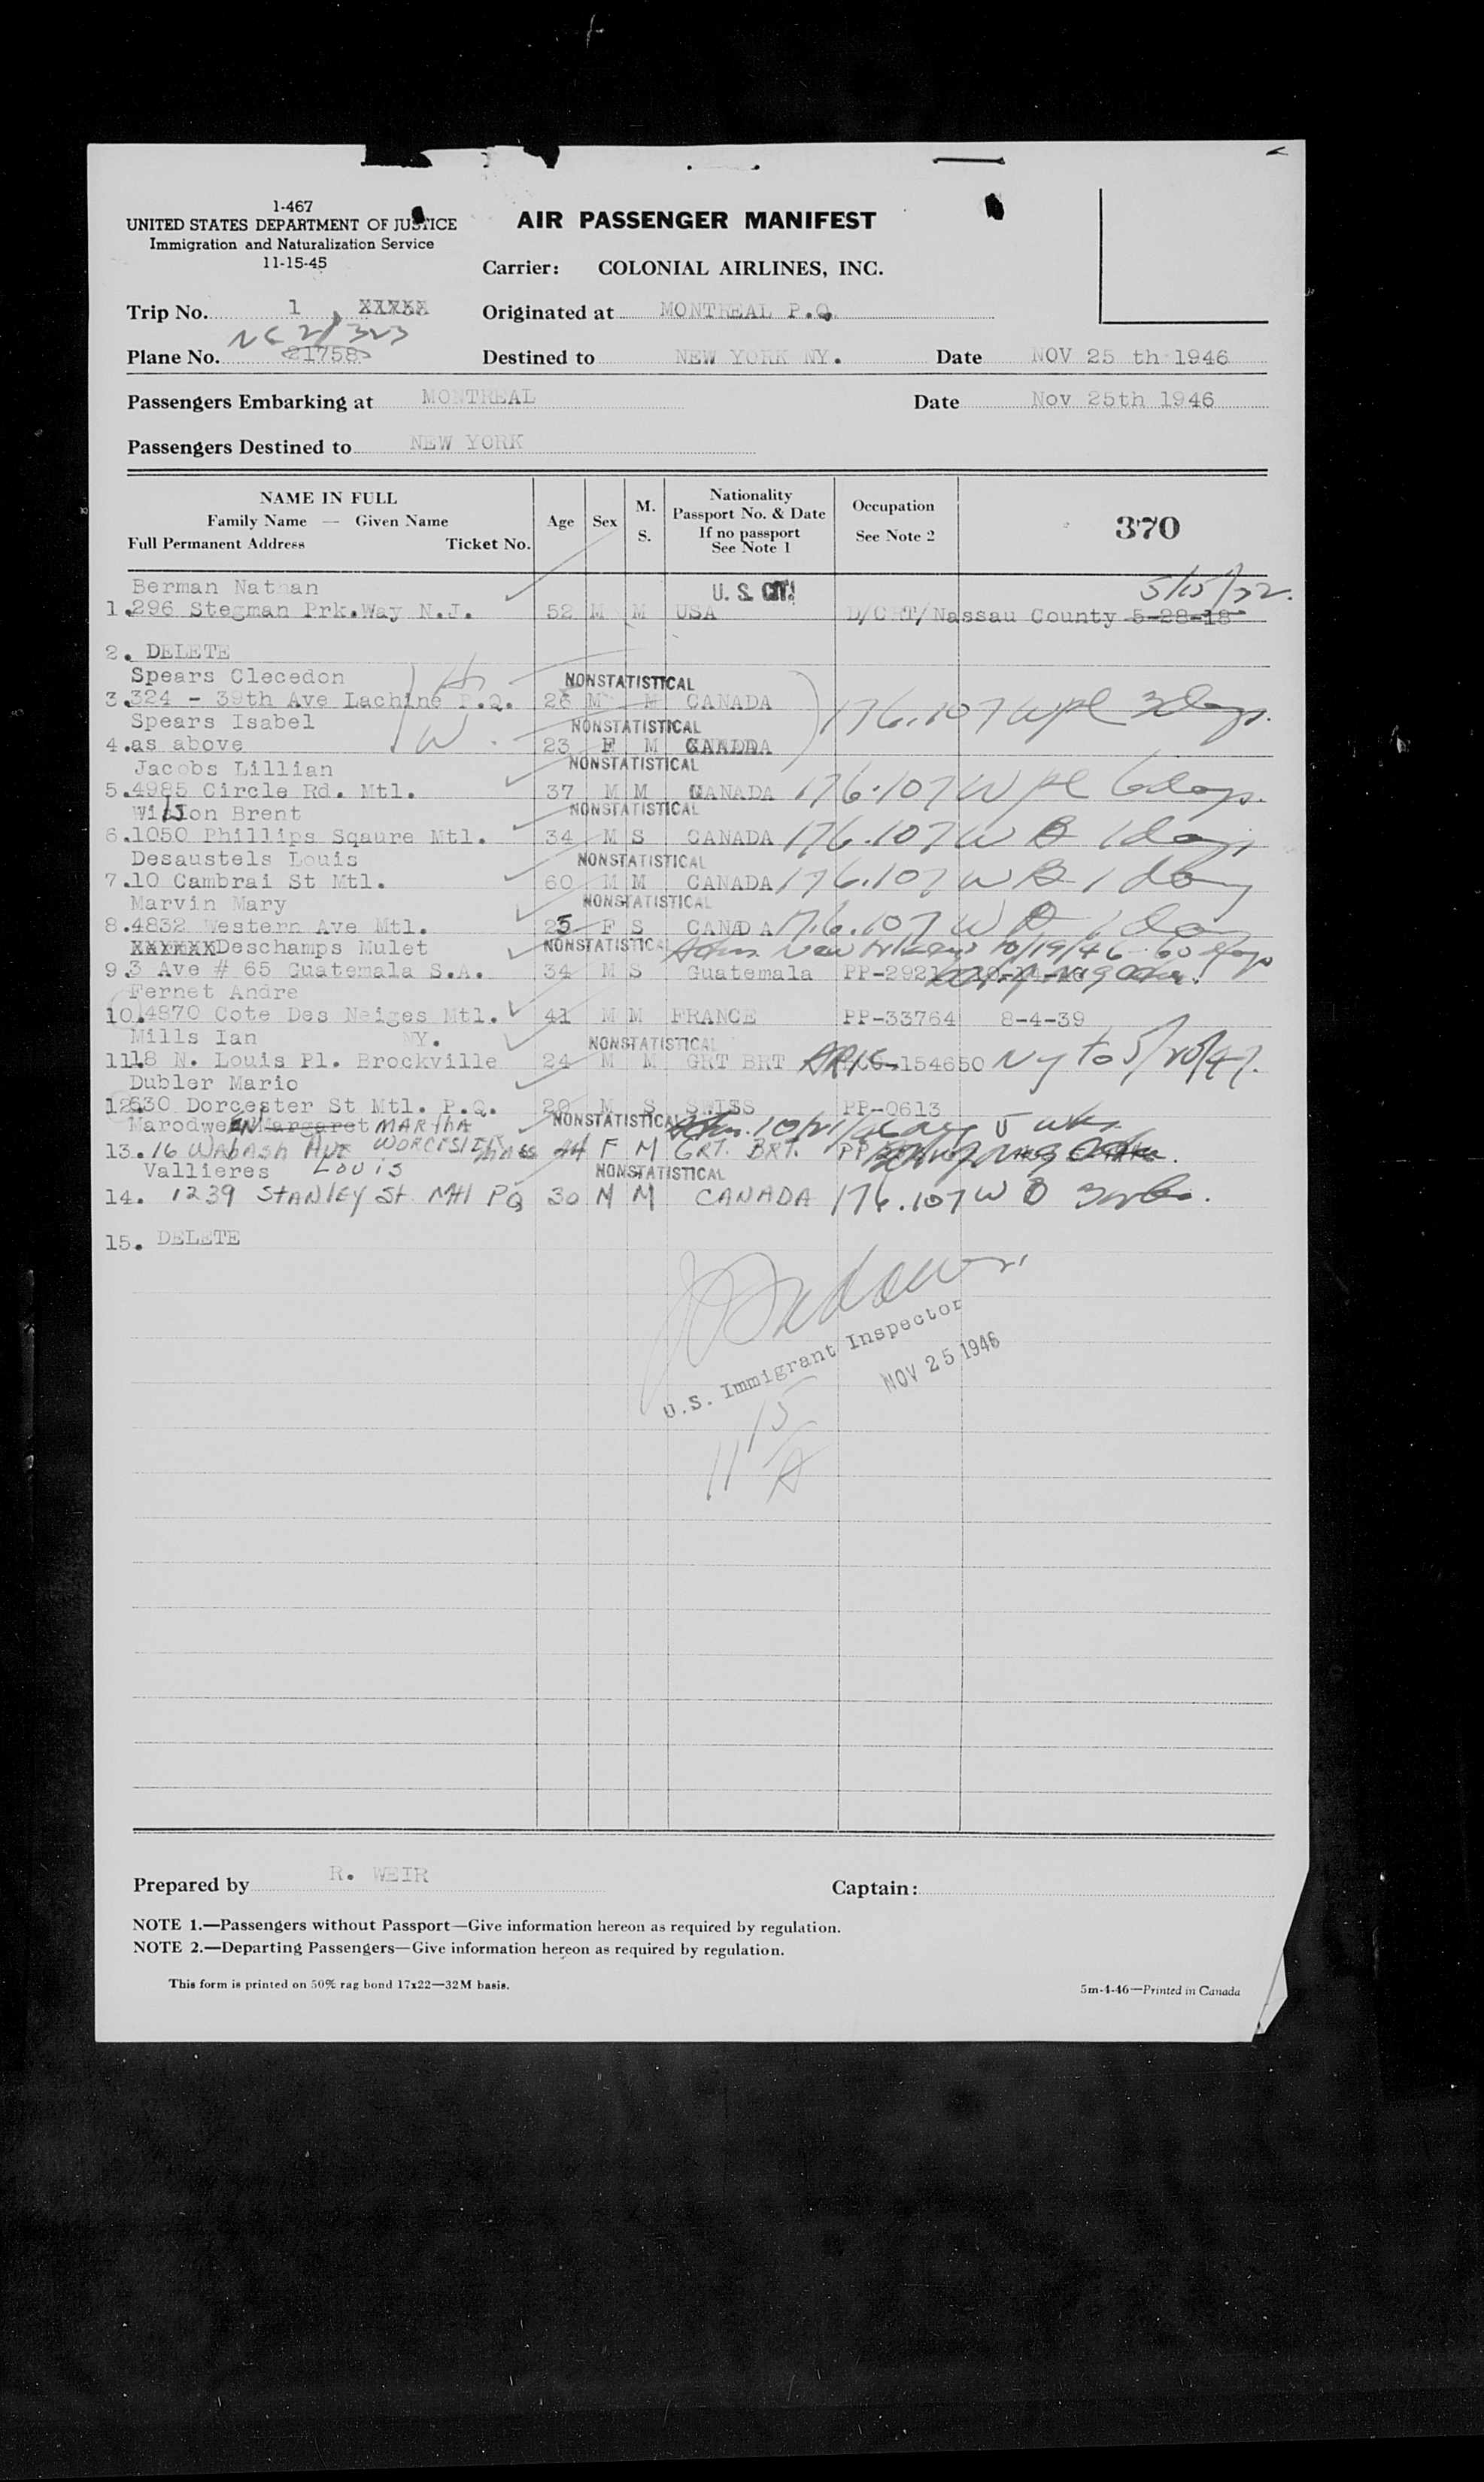 1-467
UNITED STATES DEPARTMENT OF JUSTICE
Immigration and Naturalization Service
11-15-45
AIR PASSENGER MANIFEST
Carrier: COLONIAL AIRLINES, INC.
Trip No. 1
Originated at MONTREAL P.Q.
NC 21323
Plane No. 21758
Destined to NEW YORK NY.
Date NOV 25 th 1946
Passengers Embarking at MONTREAL
Date Nov 25th 1946
Passengers Destined to NEW YORK
NAME IN FULL
Family Name — Given Name
Full Permanent Address Ticket No.
Age
Sex
M. S.
Nationality
Passport No. & Date
If no passport
See Note 1
Occupation
See Note 2
370
Berman Nathan U. S. CIT. 5/15/22.
1. 296 Stegman Prk.Way N.J. 52 M M USA D/CRT/Nassau County 5-28-18
2. DELETE
Spears Clecedon H NONSTATISTICAL
3. 324 - 39th Ave Lachine P.Q. 26 M M CANADA 176.107 W pl 3 days.
Spears Isabel NONSTATISTICAL
4. as above W 23 F M CANADA
Jacobs Lillian NONSTATISTICAL
5. 4985 Circle Rd. Mtl. 37 M M CANADA 176.107 W pl 6 days.
Wilson Brent NONSTATISTICAL
6. 1050 Phillips Sqaure Mtl. 34 M S CANADA 176.107 W B 1 day
Desaustels Louis NONSTATISTICAL
7. 10 Cambrai St Mtl. 60 M M CANADA 176.107 W B 1 day
Marvin Mary NONSTATISTICAL
8. 4832 Western Ave Mtl. 25 F S CANADA 176.107 W B 1 day
XXXXXXDeschamps Mulet NONSTATISTICAL Adm. New Orleans 10/19/46 60 days
9. 3 Ave # 65 Guatemala S.A. 34 M S Guatemala PP-2921
Fernet Andre
10. 4870 Cote Des Neiges Mtl. 41 M M FRANCE PP-33764 8-4-39
Mills Ian NY. NONSTATISTICAL
11. 18 N. Louis Pl. Brockville 24 M M GRT BRT 154650 NY to 5/20/47.
Dubler Mario
12. 630 Dorcester St Mtl. P.Q. 20 M S SWISS PP-0613
MarodweEN Margaret MARTHA NONSTATISTICAL Adm. 10/21/46 5 wks
13. 16 WABASH AVE WORCESTER MASS 44 F M GRT. BRT. PP
Vallieres LOUIS NONSTATISTICAL
14. 1239 STANLEY St Mtl PQ 30 M M CANADA 176.107 W B 3 wks.
15. DELETE
U.S. Immigrant Inspector
NOV 25 1946
15
11 A
Prepared by R. WEIR
Captain:
NOTE 1.—Passengers without Passport—Give information hereon as required by regulation.
NOTE 2.—Departing Passengers—Give information hereon as required by regulation.
This form is printed on 50% rag bond 17x22—32M basis.
5m-4-46—Printed in Canada